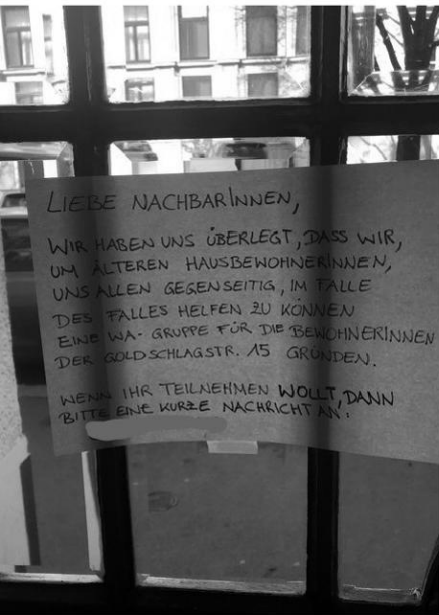 LIEBE NACHBARINNEN,
WIR HABEN UNS ÜBERLEGT, DASS WIR,
UM ÄLTEREN HAUSBEWOHNERINNEN,
UNS ALLEN GEGENSEITIG, IM FALLE
DES FALLES HELFEN ZU KÖNNEN
EINE WA- GRUPPE FÜR DIE BEWOHNERINNEN
DER GOLDSCHLAGSTR. 15 GRÜNDEN.
WENN IHR TEILNEHMEN WOLLT, DANN
BITTE EINE KURZE NACHRICHT AN: